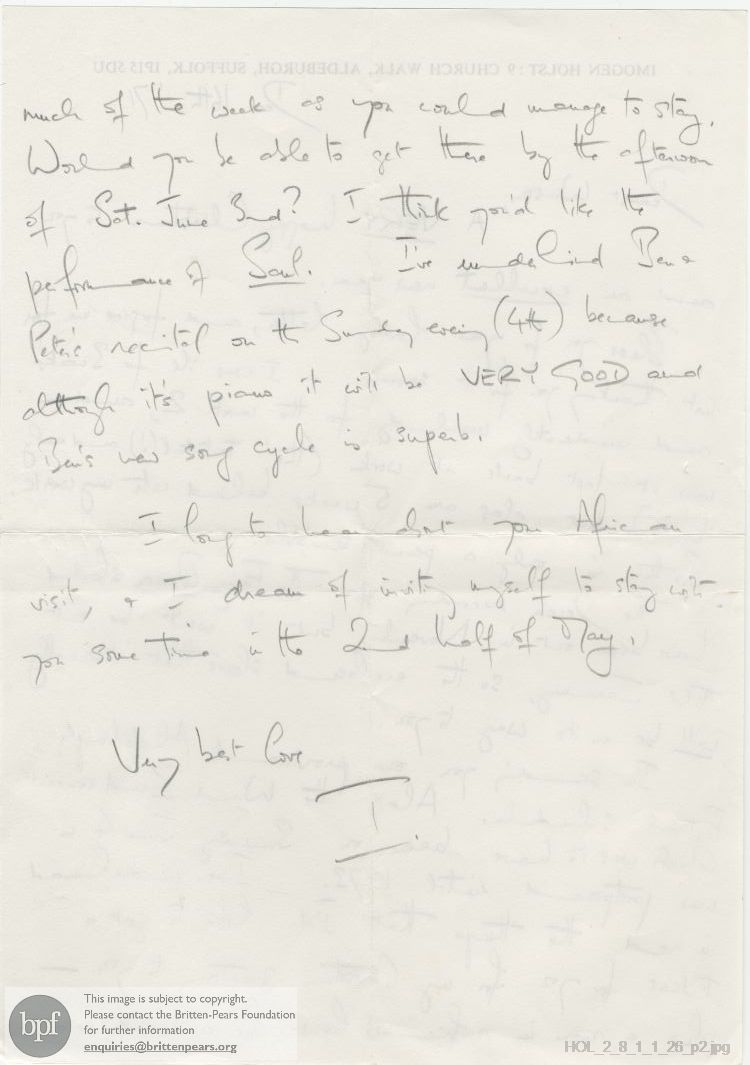 much of the week as you could manage to stay.
Would you be able to get there by the afternoon
of Sat. June 3rd? I think you'd like the
performance of Saul. I've underlined Ben &
Peter's recital on the Sunday evening (4th) because
although it's piano it will be VERY GOOD and
Ben's new song cycle is superb.
I long to hear about your African
visit, & I dream of inviting myself to stay with
you some time in the 2nd half of May.
Very best love
I.
IMOGEN HOLST : 9 CHURCH WALK, ALDEBURGH, SUFFOLK, IP15 5DU
bpf
This image is subject to copyright.
Please contact the Britten-Pears Foundation
for further information
enquiries@brittenpears.org
HOL_2_8_1_1_26_p2.jpg